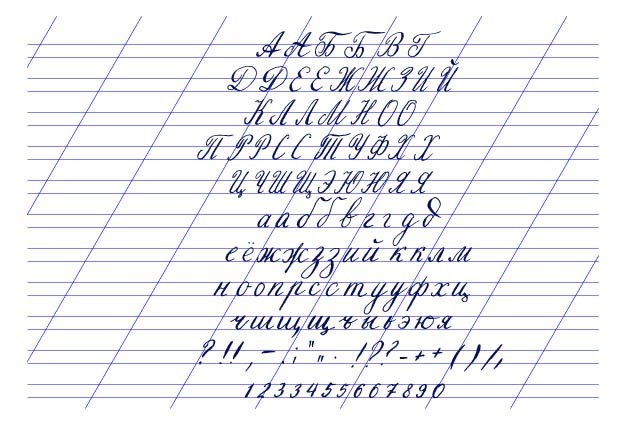 А А Б Б В Г
Д Д Е Е Ж Ж З И Й
К Л Л М Н О О
П Р Р С С Т У Ф Х Х
Ц Ч Ш Щ Э Ю Ю Я Я
а а б б в г г д д
е ё ж ж з з и й к к л м
н о о п р с с т у у ф х ц
ч ш щ щ ъ ы ь э ю я
? ! ! , – . ; " „ . ! ? ? – + + ( ) / ,
1 2 3 3 4 5 5 6 6 7 8 9 0